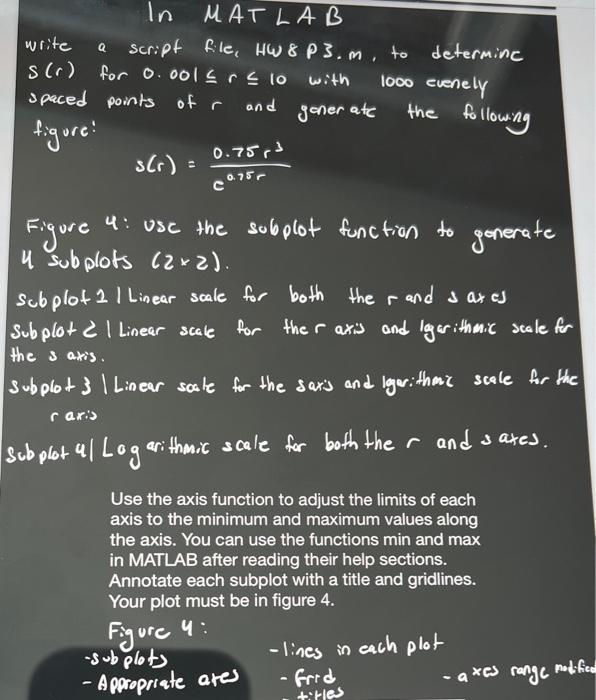 In MATLAB
write a script file, HW8P3.m, to determine
s(r) for 0.001 ≤ r ≤ 10 with 1000 evenely
spaced points of r and generate the following
figure:
s(r) = 0.75r³ / e^0.75r
Figure 4: use the subplot function to generate
4 subplots (2x2).
Subplot 1 | Linear scale for both the r and s axes
Subplot 2 | Linear scale for the r axis and logarithmic scale for
the s axis.
Subplot 3 | Linear scale for the s axis and logarithmic scale for the
r axis
Subplot 4 | Logarithmic scale for both the r and s axes.
Use the axis function to adjust the limits of each
axis to the minimum and maximum values along
the axis. You can use the functions min and max
in MATLAB after reading their help sections.
Annotate each subplot with a title and gridlines.
Your plot must be in figure 4.
Figure 4:
-subplots
- Appropriate axes
- lines in each plot
- grid
- titles
- axes range modified